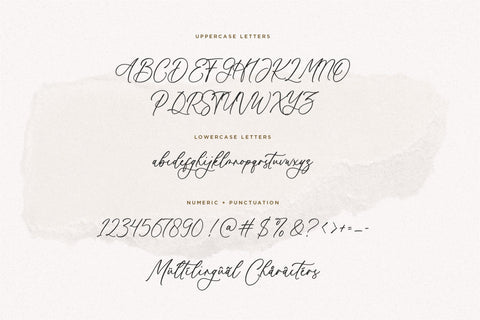 UPPERCASE LETTERS
ABCDEFGHIJKLMNO
PQRSTUVWXYZ
LOWERCASE LETTERS
abcdefghijklmnopqrstuvwxyz
NUMERIC + PUNCTUATION
1234567890 !@#$%&?<>+=_-
Multilingual Characters